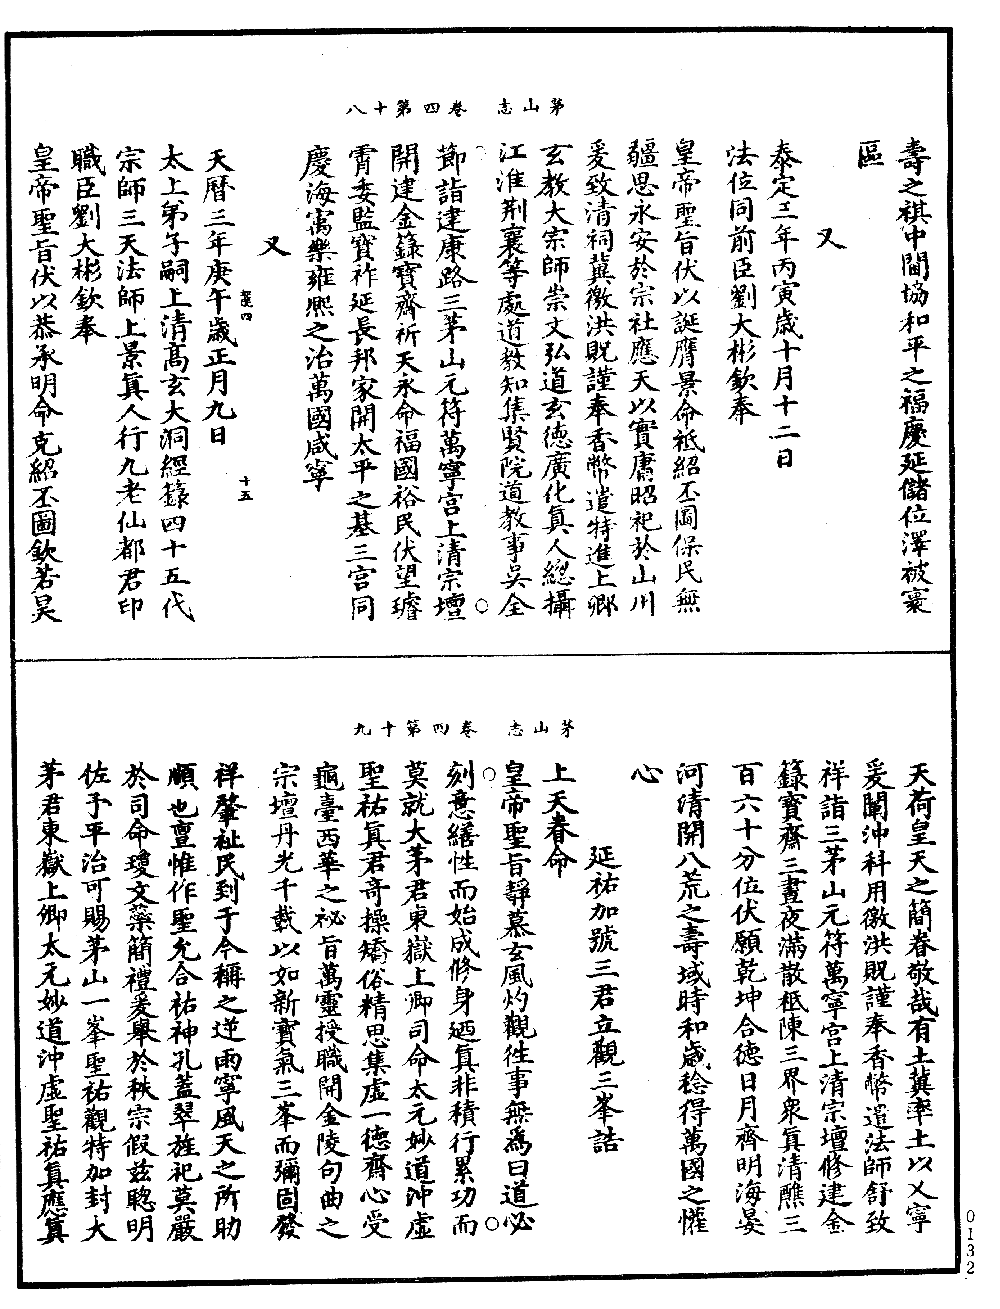 茅山志　卷四第十八
壽之祺中閫協和平之福慶延儲位澤被寰
區
又
泰定三年丙寅歲十月十二日
法位同前臣劉大彬欽奉
皇帝聖旨伏以誕膺景命祗紹丕圖保民無
疆思永安於宗社應天以實庸昭祀於山川
爰致清祠冀徼洪貺謹奉香幣遣特進上卿
玄教大宗師崇文弘道玄德廣化真人總攝
江淮荆襄等處道教知集賢院道教事吳全
節詣建康路三茅山元符萬寧宮上清宗壇
開建金籙寶齋祈天永命福國裕民伏望璿
霄委監寶祚延長邦家開太平之基三宮同
慶海寓樂雍熙之治萬國咸寧
又
天曆三年庚午歲正月九日
十五
太上弟子嗣上清高玄大洞經籙四十五代
宗師三天法師上景真人行九老仙都君印
職臣劉大彬欽奉
皇帝聖旨伏以恭承明命克紹丕圖欽若昊
茅山志　卷四第十九
天荷皇天之簡眷敬哉有土冀率土以乂寧
爰闡沖科用徼洪貺謹奉香幣遣法師舒致
祥詣三茅山元符萬寧宮上清宗壇修建金
籙寶齋三晝夜滿散祗陳三界衆真清醮三
百六十分位伏願乾坤合德日月齊明海晏
河清開八荒之壽域時和歲稔得萬國之懽
心
延祐加號三君立觀三峯誥
上天眷命
皇帝聖旨靜慕玄風灼觀徃事無爲曰道必
刻意繕性而始成修身廼真非積行累功而
莫就大茅君東嶽上卿司命太元妙道沖虛
聖祐真君奇操矯俗精思集虛一德齋心受
龜臺西華之祕旨萬靈授職開金陵句曲之
宗壇丹光千載以如新寶氣三峯而彌固發
祥肇祉民到于今稱之逆雨寧風天之所助
順也亶惟作聖允合祐神孔蓋翠旌祀莫嚴
於司命瓊文蘂簡禮爰舉於秩宗假兹聦明
佐予平治可賜茅山一峯聖祐觀特加封大
茅君東嶽上卿太元妙道沖虛聖祐真應真
0132